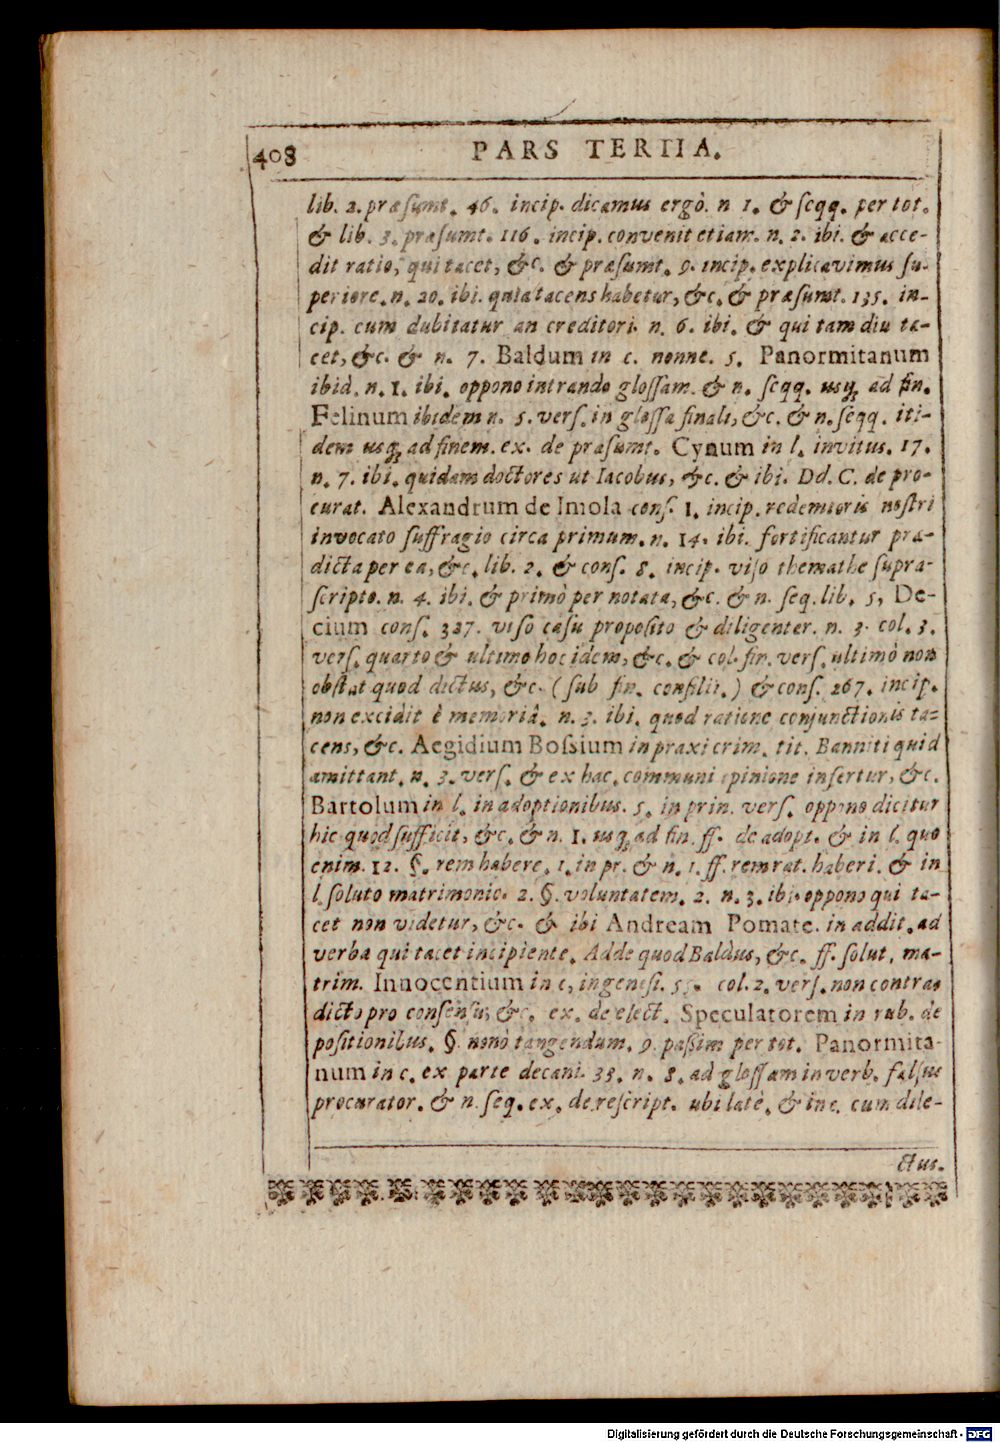 408 PARS TERTIA.
lib. 2. præsumt. 46. incip. dicamus ergò. n 1. & seqq. per tot.
& lib. 3. præsumt. 116. incip. convenit etiam. n. 2. ibi. & acce-
dit ratio, qui tacet, &c. & præsumt. 9. incip. explicavimus su-
periore. n. 20. ibi. quia tacens habetur, &c. & præsumt. 135. in-
cip. cum dubitatur an creditori. n. 6. ibi. & qui tam diu ta-
cet, &c. & n. 7. Baldum in c. nonne. 5. Panormitanum
ibid. n. 1. ibi. oppono intrando glossam. & n. seqq. usq; ad fin.
Felinum ibidem n. 5. vers. in glossa finali, &c. & n. seqq. iti-
dem usq; ad finem. ex. de præsumt. Cynum in l. invitus. 17.
n. 7. ibi. quidam doctores ut Iacobus, &c. & ibi. Dd. C. de pro-
curat. Alexandrum de Imola cons. 1. incip. redemtoris nostri
invocato suffragio circa primum. n. 14. ibi. fortificantur præ-
dicta per ea, &c. lib. 2. & cons. 8. incip. viso themathe supra-
scripto. n. 4. ibi. & primò per notata, &c. & n. seq. lib. 5, De-
cium cons. 327. viso casu proposito & diligenter. n. 3. col. 3.
vers. quarto & ultimo hoc idem, &c. & col. fin. vers. ultimò non
obstat quod dictus, &c. (sub fin. consilii.) & cons. 267. incip.
non excidit è memoriâ. n. 3. ibi. quod ratione conjunctionis ta-
cens, &c. Aegidium Bossium in praxi crim. tit. Banniti quid
amittant. n. 3. vers. & ex hac. communi opinione infertur, &c.
Bartolum in l. in adoptionibus. 5. in prin. vers. oppono dicitur
hic quod sufficit, &c. & n. 1. usq; ad fin. ff. de adopt. & in l. quo
enim. 12. §. rem habere. 1. in pr. & n. 1. ff. rem rat. haberi. & in
l. soluto matrimonio. 2. §. voluntatem. 2. n. 3. ibi. oppono qui ta-
cet non videtur, &c. & ibi Andream Pomate. in addit. ad
verba qui tacet incipiente. Adde quod Baldus, &c. ff. solut. ma-
trim. Innocentium in c, in genesi. 55. col. 2. vers. non contra-
dicto pro consensu, &c. ex. de elect. Speculatorem in rub. de
positionibus. §. nonò tangendum. 9. passim per tot. Panormita-
num in c. ex parte decani. 33. n. 8. ad glossam in verb. falsus
procurator. & n. seq. ex. de rescript. ubi latè. & in c. cum dile-
ctus.
Digitalisierung gefördert durch die Deutsche Forschungsgemeinschaft - DFG